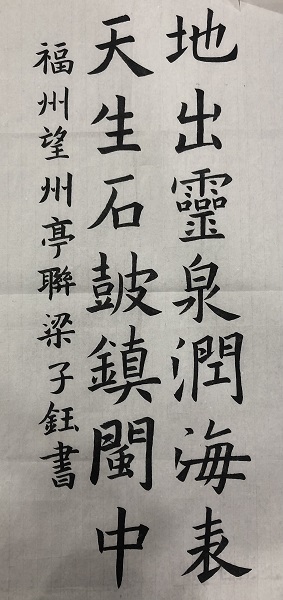 地出靈泉潤海表
天生石鼓鎮閩中
福州望州亭聯梁子鈺書